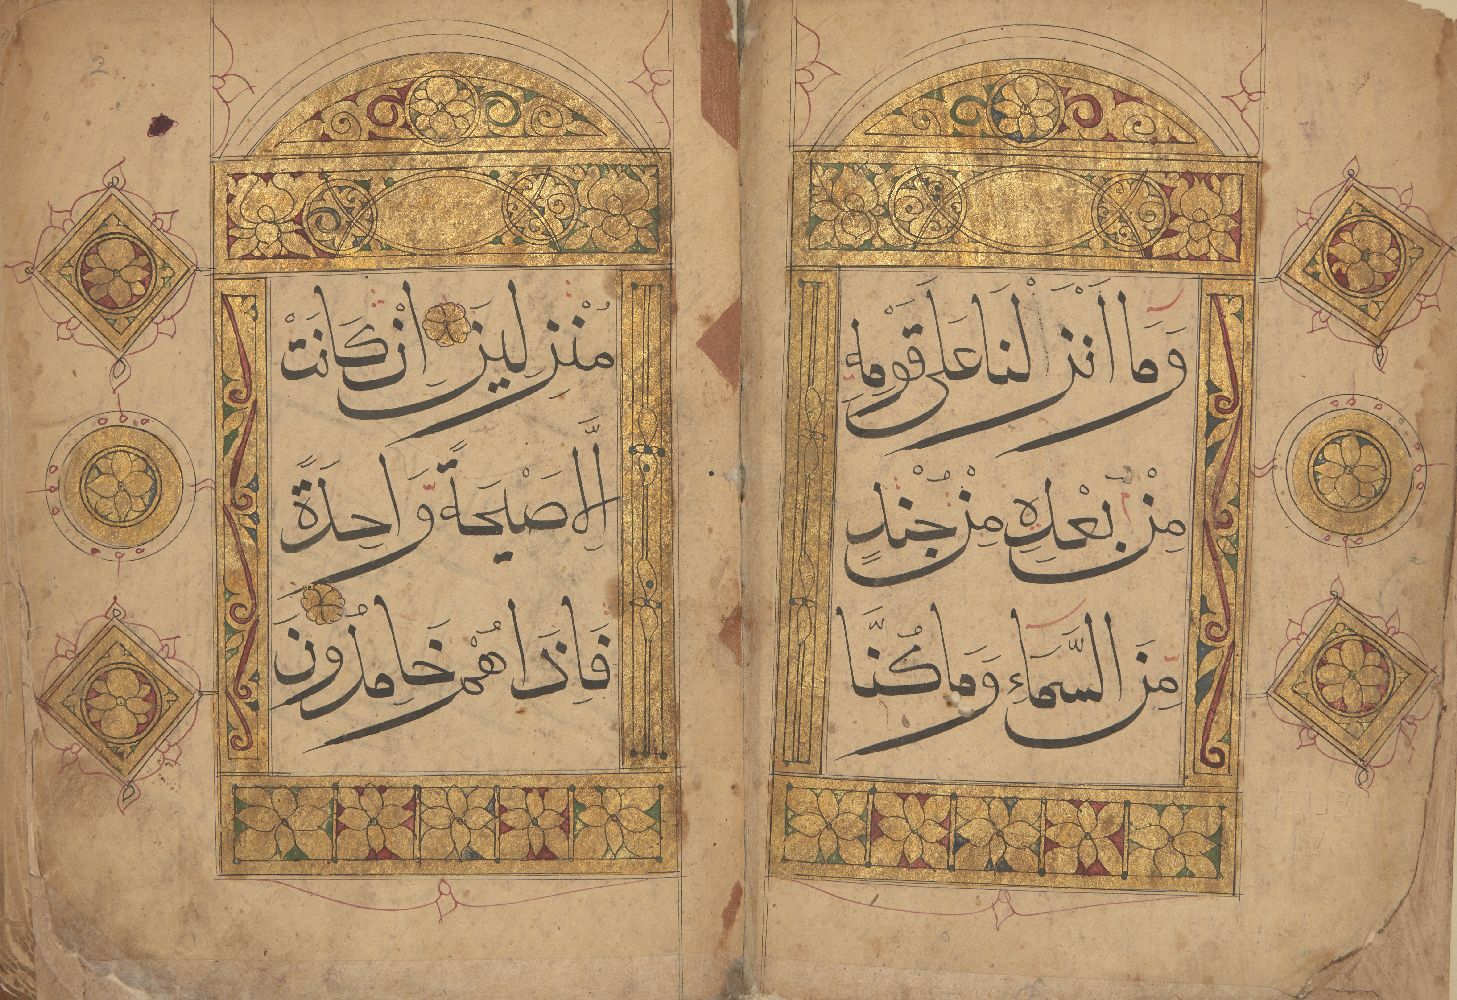 وَمَا اَنْزَلْنَا عَلٰى قَوْمِهٖ
مِنْ بَعْدِهٖ مِنْ جُنْدٍ
مِنَ السَّمَاءِ وَمَا كُنَّا
مُنْزِلِيَن اِنْ كَانَتْ
اِلَّا صَيْحَةً وَاحِدَةً
فَاِذَا هُمْ خَامِدُونَ
2